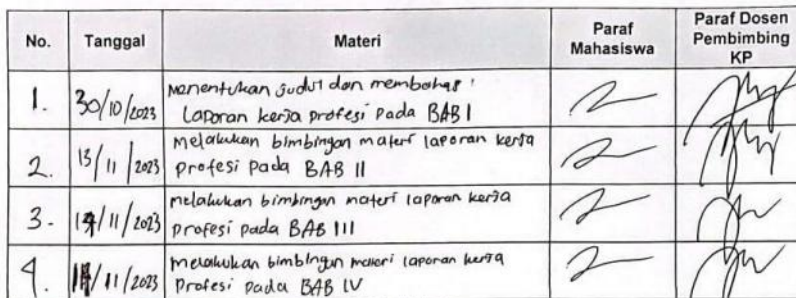 No. Tanggal Materi Paraf Mahasiswa Paraf Dosen Pembimbing KP
1. 30/10/2023 Menentukan judul dan membahas
Laporan kerja profesi pada BAB I
2. 13/11/2023 Melakukan bimbingan materi laporan kerja
profesi pada BAB II
3. /11/2023 melakukan bimbingan materi laporan kerja
profesi pada BAB III
4. /11/2023 melakukan bimbingan materi laporan kerja
profesi pada BAB IV